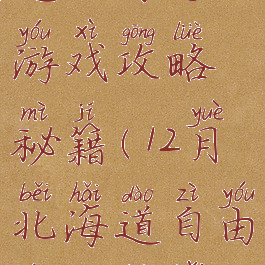 yóu xì gōng lüè
游戏攻略
mì jí yuè
秘籍(12月
běi hǎi dào zì yóu
北海道自由